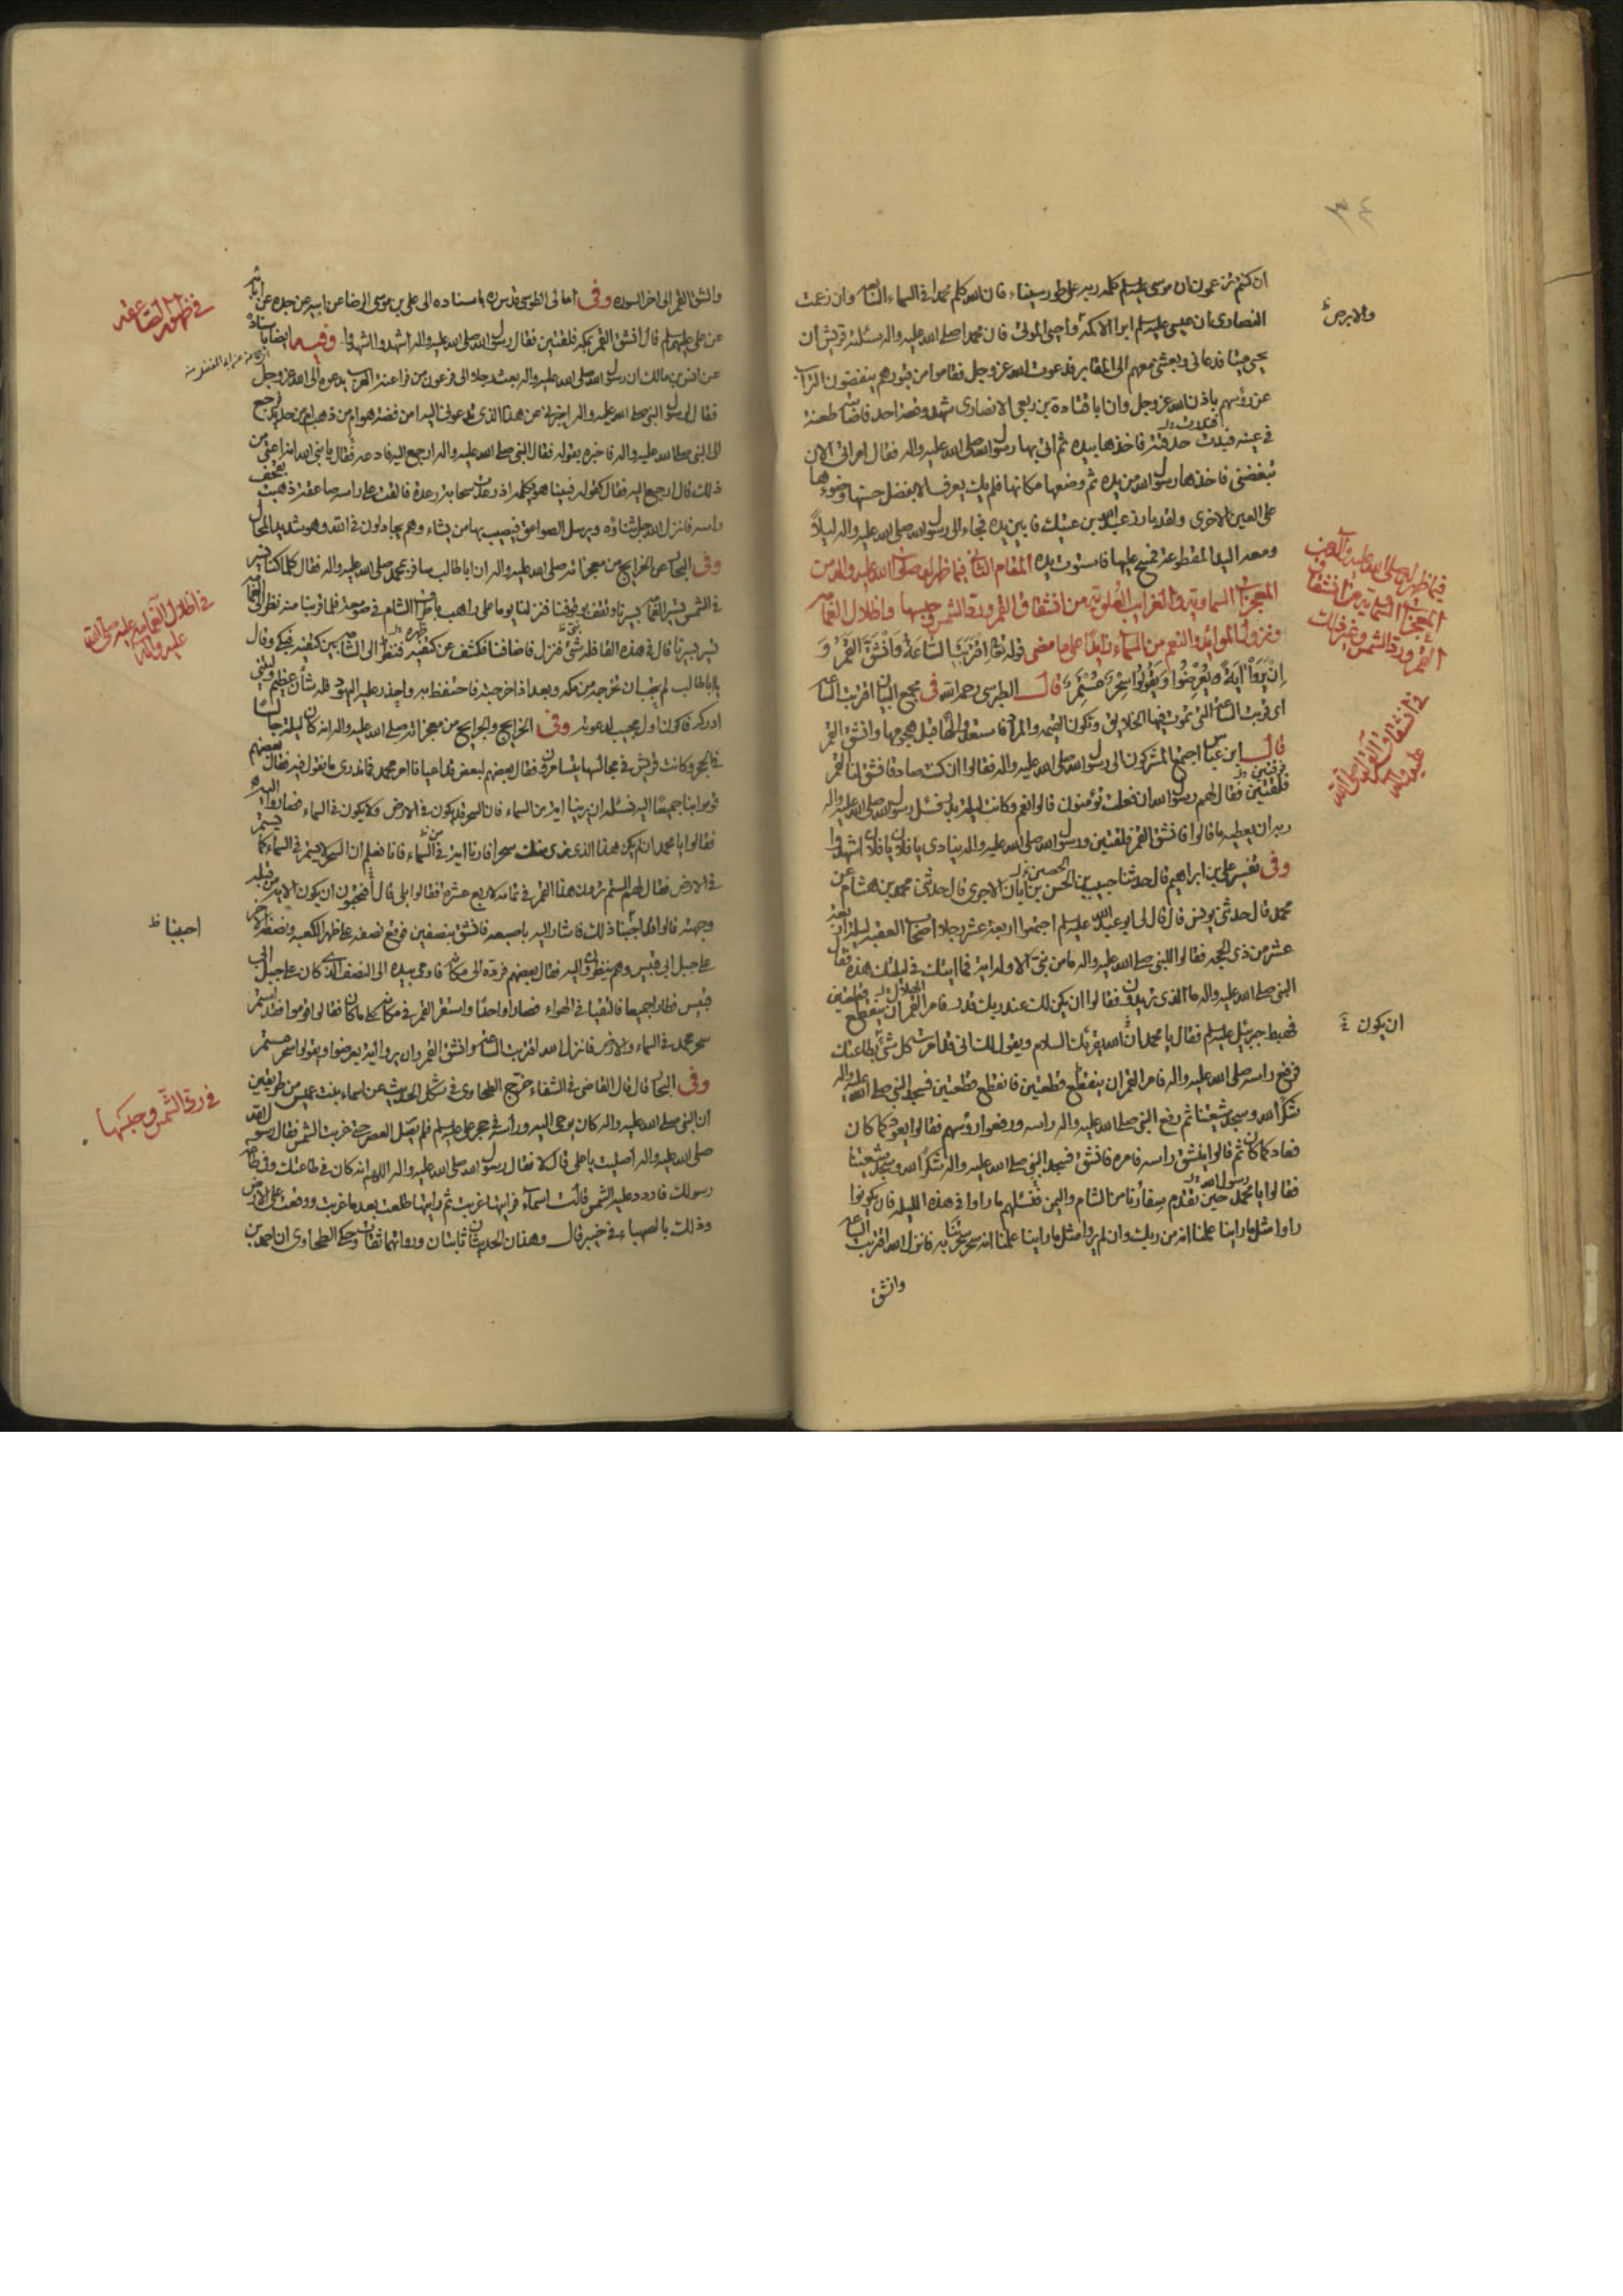 ان كنتم تزعمون ان موسى عليه السلم كلمه ربه على طور سيناء فان الله كلم محمدا فى السماء السابعه وان زعمت
النصارى ان عيسى عليه السلم ابرا الاكمه واحيى الموتى فان محمدا صلى الله عليه واله سئلته قريش ان
يحيى ميتا فدعانى وبعثنى معهم الى المقابر فدعوت الله عز وجل فقاموا من قبورهم ينفضون التراب
عن رؤسهم باذن الله عز وجل وان ابا قتادة بن ربعى الانصارى شهد وقعة احد فاصابته طعنة
فى عينه فبدت حدقته فاخذها بيده ثم اتى بها رسول الله صلى الله عليه واله فقال امراتى الان
تبغضنى فاخذها رسول الله من يده ثم وضعها مكانها فلم يك يعرف الا بفضل حسنها وضوءها
على العين الاخرى ولقد بارز عبد الله بن عتيك فابين يده فجاء الى رسول الله صلى الله عليه واله ليلاً
ومعه اليد المقطوعة فمسح عليها فاستوت يده المقام الثانى فيما ظهر له صلوات الله عليه واله من
المعجزات السماوية والغرايب العلوية من انشقاق القمر ورد الشمس وحبسها واظلال الغمامه
ونزول الموائد والنعم من السماء زايداً على ما مضى قوله تعالى اِقْتَرَبَتِ السَّاعَةُ وَانْشَقَّ الْقَمَرُ وَ
اِنْ يَرَوْا ايَةً يُعْرِضُوا وَيَقُولُوا سِحْرٌ مُسْتَمِرٌّ قال الطبرسى رحمه الله فى مجمع البيان اقتربت الساعه
اى قربت الساعة التى تموت فيها الخلايق وتكون القيمه والمراد فاستعدوا لها قبل هجومها وانشق القمر
قال ابن عباس اجتمع المشركون الى رسول الله صلى الله عليه واله فقالوا ان كنت صادقا فشق لنا القمر
فلقتين فقال لهم رسول الله ان فعلت تؤمنون قالوا نعم وكانت ليلة بدر فسئل رسول الله صلى الله عليه واله
ربه ان يعطيه ما قالوا فانشق القمر فلقتين ورسول الله صلى الله عليه واله ينادى يا فلان يا فلان اشهدوا
وفى تفسير على بن ابراهيم قال حدثنا حبيب بن الحسن بن ابان الاجرى قال حدثنى محمد بن هشام عن
محمد قال حدثنى يونس قال قال لى ابو عبد الله عليه السلم اجتمعوا اربعة عشر رجلا اصحاب العقبه ليلة اربعة
عشر من ذى الحجه فقالوا للنبى صلى الله عليه واله ما من نبى الا وله اية فما ايتك فى ليلتك هذه فقال
النبى صلى الله عليه واله ما الذى تريدون فقالوا ان يكن لك عند ربك قدر فامر القمر ان ينقطع قطعتين
فهبط جبرئيل عليه السلم فقال يا محمد ان الله يقرئك السلام ويقول لك انى قد امرت كل شئ بطاعتك
فرفع راسه صلى الله عليه واله فامر القمر ان ينقطع قطعتين فانقطع قطعتين فسجد النبى صلى الله عليه واله
شكراً لله وسجد شيعتنا ثم رفع النبى صلى الله عليه واله راسه ورفعوا رؤسهم فقالوا يعود كما كان
فعاد كما كان ثم قالوا ينشق راسه فامره فانشق فسجد النبى صلى الله عليه واله شكراً لله وسجد شيعتنا
فقالوا يا محمد حين تقدم سفارنا من الشام واليمن فنسئلهم ما راوا فى هذه الليله فان يكونوا
راوا مثل ما راينا علمنا انه من ربك وان لم يروا مثل ما راينا علمنا انه سحر سحرتنا به فانزل الله اقتربت الساعه
وانشق
والابرص
فيما ظهر له صلى الله عليه واله من
المعجزات السماوية من انشقاق
القمر ورد الشمس وغير ذلك
فى انشقاق القمر له صلى الله
عليه واله
ان يكون
وانشق القمر الى اخر السوره وفى امالى الطوسى قدس سره باسناده الى على بن موسى الرضا عن ابيه عن جده عن ابائه
عن على عليهم السلم قال انشق القمر بمكه فلقتين فقال رسول الله صلى الله عليه واله اشهدوا اشهدوا وفيه ايضا باسناده
عن انس بن مالك ان رسول الله صلى الله عليه واله بعث رجلا الى فرعون من فراعنة العرب يدعوه الى الله عز وجل
فقال لرسول النبى صلى الله عليه واله اخبرنى عن هذا الذى تدعونى اليه امن فضة هو ام من ذهب ام من حديد فرجع
الى النبى صلى الله عليه واله فاخبره بقوله فقال النبى صلى الله عليه واله ارجع اليه فادعه فقال يا نبى الله انه اعتى من
ذلك قال ارجع اليه فقال كقوله فبينا هو يكلمه اذ رعدت سحابة رعدة فالقت على راسه صاعقة ذهبت بقحف
راسه فانزل الله جل ثناؤه ويرسل الصواعق فيصيب بها من يشاء وهم يجادلون فى الله وهو شديد المحال
وفى البحار عن الخرايج من معجزاته صلى الله عليه واله ان ابا طالب سافر بمحمد صلى الله عليه واله فقال كلما كنا نسير
فى الشمس تسير الغمامه بسيرنا وتقف بوقوفنا فنزلنا يوما على راهب باطراف الشام فى صومعة فلما قربنا منه نظر الى الغمامه
تسير بسيرنا قال فى هذه القافله شئ فنزل فاضافنا فكشف عن كتفيه فنظر الى الشامه بين كتفيه فبكى وقال
يا ابا طالب لم يجب ان تخرجه من مكه وبعد اذ اخرجته فاحتفظ به واحذر عليه اليهود فله شان عظيم وليتنى
ادركه فاكون اول مجيب لدعوته وفى الخرايج والجرايح من معجزاته صلى الله عليه واله انه كان ليلة جالسا
فى الحجر وكانت قريش فى مجالسها يتسامرون فقال بعضهم لبعض قد اعيانا امر محمد فما ندرى ما نقول فيه فقال بعضهم
قوموا بنا جميعًا اليه نسئله ان يرينا اية من السماء فان السحر قد يكون فى الارض ولا يكون فى السماء فصاروا اليه
فقالوا يا محمد ان لم يكن هذا الذى نرى منك سحرا فارنا اية فى السماء فانا نعلم ان السحر لا يستمر فى السماء كما يستمر
فى الارض فقال لهم الستم ترون هذا القمر فى تمامه لاربع عشره فقالوا بلى قال افتحبون ان يكون الاية من قبله
وجهته قالوا قد احببنا ذلك فاشار اليه باصبعه فانشق بنصفين فوقع نصفه على ظهر الكعبه ونصفه الاخر
على جبل ابى قبيس وهم ينظرون اليه فقال بعضهم فرده الى مكانه فاومى بيده الى النصف الذى كان على جبل ابى
قبيس فطارا جميعا فالتقيا فى الهواء فصارا واحدًا واستقر القمر فى مكانه على ما كان فقالوا قوموا فقد استمر
سحر محمد فى السماء والارض فانزل الله اقتربت الساعة وانشق القمر وان يروا اية يعرضوا ويقولوا سحر مستمر
وفى البحار قال قال القاضى فى الشفاء خرج الطحاوى فى مشكل الحديث عن اسماء بنت عميس من طريقين
ان النبى صلى الله عليه واله كان يوحى اليه ورأسه فى حجر على عليه السلم فلم يصل العصر حتى غربت الشمس فقال رسول الله
صلى الله عليه واله اصليت يا على قال لا فقال رسول الله صلى الله عليه واله اللهم انه كان فى طاعتك وفى طاعة
رسولك فاردد عليه الشمس قالت اسماء فرايتها غربت ثم رايتها طلعت بعد ما غربت ووقفت على الارض
وذلك بالصهباء فى خيبر قال وهذان الحديثان ثابتان ورواتهما ثقات وحكى الطحاوى ان احمد بن
فى ظهور الصاعقه
فى اظلال الغمامه عليه صلى الله
عليه واله
احببنا ظ
فى رد الشمس وحبسها